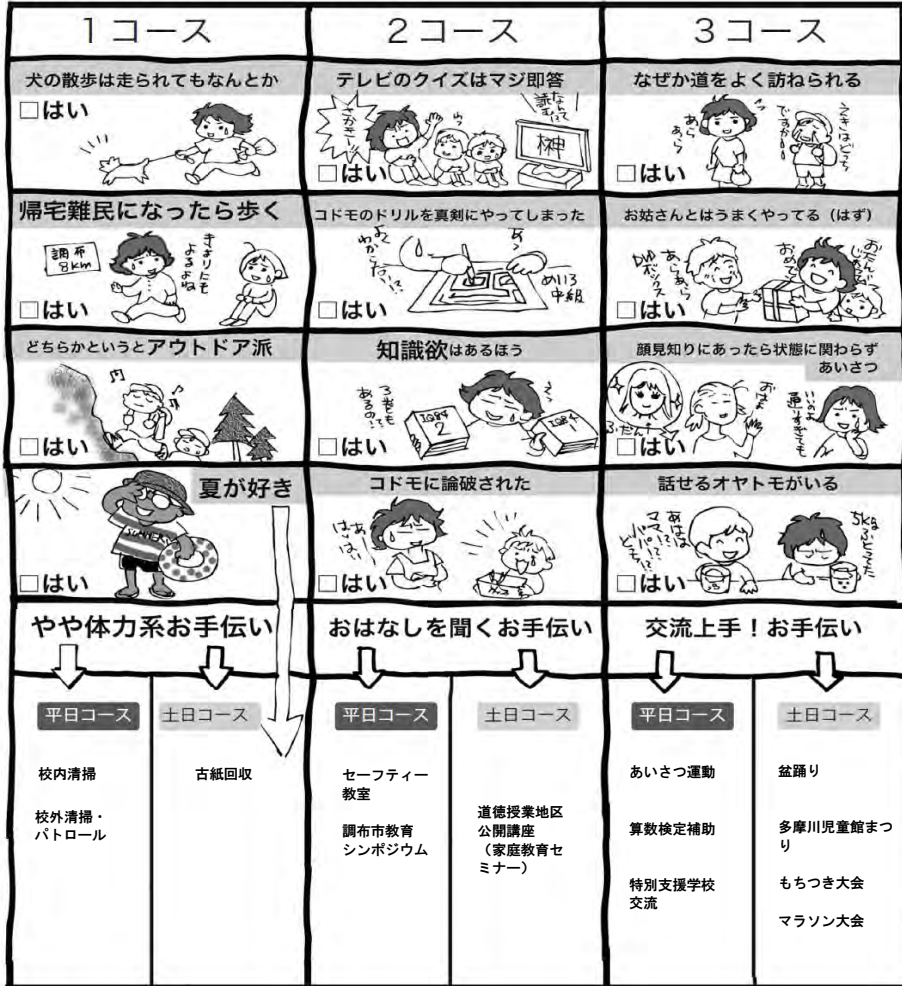 1コース
犬の散歩は走られてもなんとか
□はい
帰宅難民になったら歩く
調布
8km
きょりにも
よるよね
□はい
どちらかというとアウトドア派
□はい
夏が好き
SUMMER
□はい
やや体力系お手伝い
平日コース
校内清掃
校外清掃・
パトロール
土日コース
古紙回収
2コース
テレビのクイズはマジ即答
さかきー!!
なんて
読む?
榊
□はい
コドモのドリルを真剣にやってしまった
よく
わからない!?
あっ
めいろ
中級
□はい
知識欲はあるほう
3巻も
あるの!?
1Q84
2
1Q84
□はい
コドモに論破された
あー
はいはい
□はい
おはなしを聞くお手伝い
平日コース
セーフティー
教室
調布市教育
シンポジウム
土日コース
道徳授業地区
公開講座
(家庭教育セ
ミナー)
3コース
なぜか道をよく訪ねられる
あら
あら
えきはどっち
ですか
□はい
お姑さんとはうまくやってる(はず)
あらあら
DVD
ボックス
おめでとう
□はい
顔見知りにあったら状態に関わらず
あいさつ
ふだん
おはよ
いいのよ
通りすぎても
□はい
話せるオヤトモがいる
あはは
5kg
ふとってた
□はい
交流上手!お手伝い
平日コース
あいさつ運動
算数検定補助
特別支援学校
交流
土日コース
盆踊り
多摩川児童館まつ
り
もちつき大会
マラソン大会